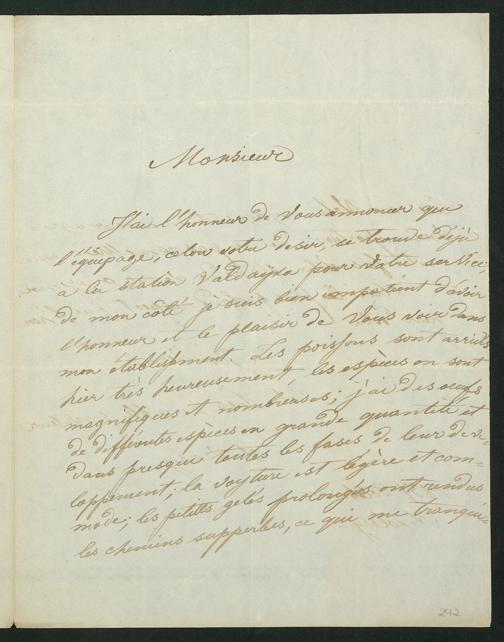 Monsieur
J'ai l'honneur de vous annoncer que
l'équipage, celon votre desir, se trouve déjà
à la station Valdayka pour votre service,
de mon côté je suis bien impatient d'avoir
l'honneur et le plaisir de vous voir dans
mon établissment. Les poissons sont arrivés
hier très heureusement, les espèces en sont
magnifiques et nombreuses; j'ai des oeufs
de différentes espèces en grande quantité et
dans presque toutes les fases de leur deve-
loppement; la voyture est légère et com-
mode; les petites gelés prolongés ont rendus
les chemins supperbes, ce qui me tranqui-
242